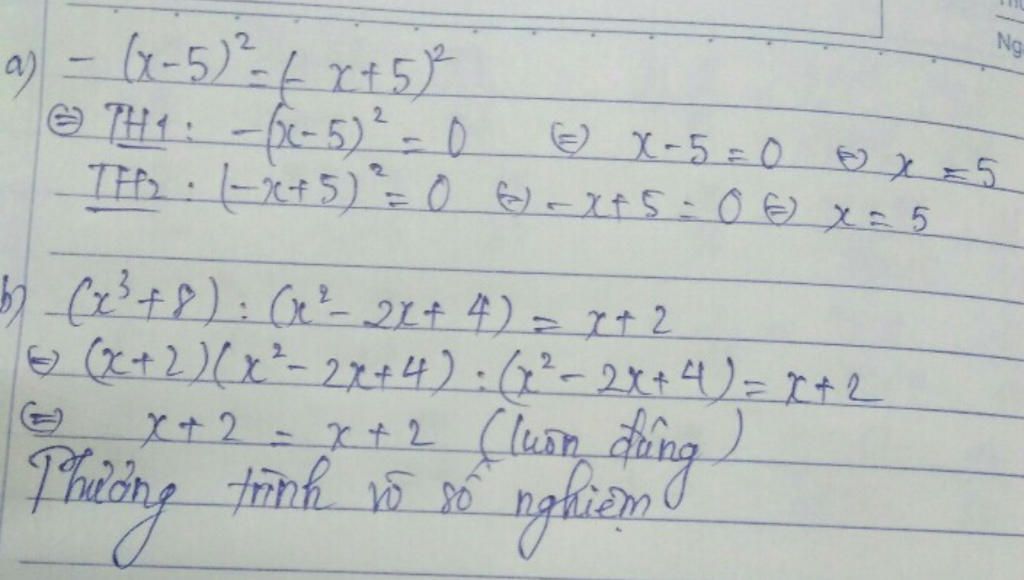 a) - (x-5)² = (- x+5)²
⇔ TH1 : -(x-5)² = 0 ⇔ x-5=0 ⇔ x = 5
TH2 : (-x+5)² = 0 ⇔ -x+5 = 0 ⇔ x = 5
b) (x³+8) : (x²- 2x+ 4) = x+2
⇔ (x+2)(x²- 2x+4) : (x²- 2x+4) = x+2
⇔ x+2 = x+2 (luôn đúng)
Phương trình vô số nghiệm